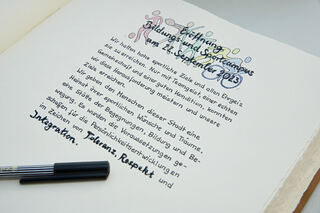 Eröffnung
Bildungs- und Sportcampus
am 22. September 2023
Wir hatten hohe sportliche Ziele und allen Ehrgeiz
sie zu erreichen. Nur mit Teamgeist, einer echten
Gemeinschaft und einer guten Kondition, konnten
wir diese Herausforderung meistern und unsere
Ziele erreichen.
Wir geben den Menschen dieser Stadt eine
Heimat ihrer sportlichen Wünsche und Träume,
eine Stätte der Begegnungen, Bildung und Be-
wegung. Es wurden die Voraussetzungen ge-
schaffen für die Persönlichkeitsentwicklungen
im Zeichen von Toleranz, Respekt und
Integration.